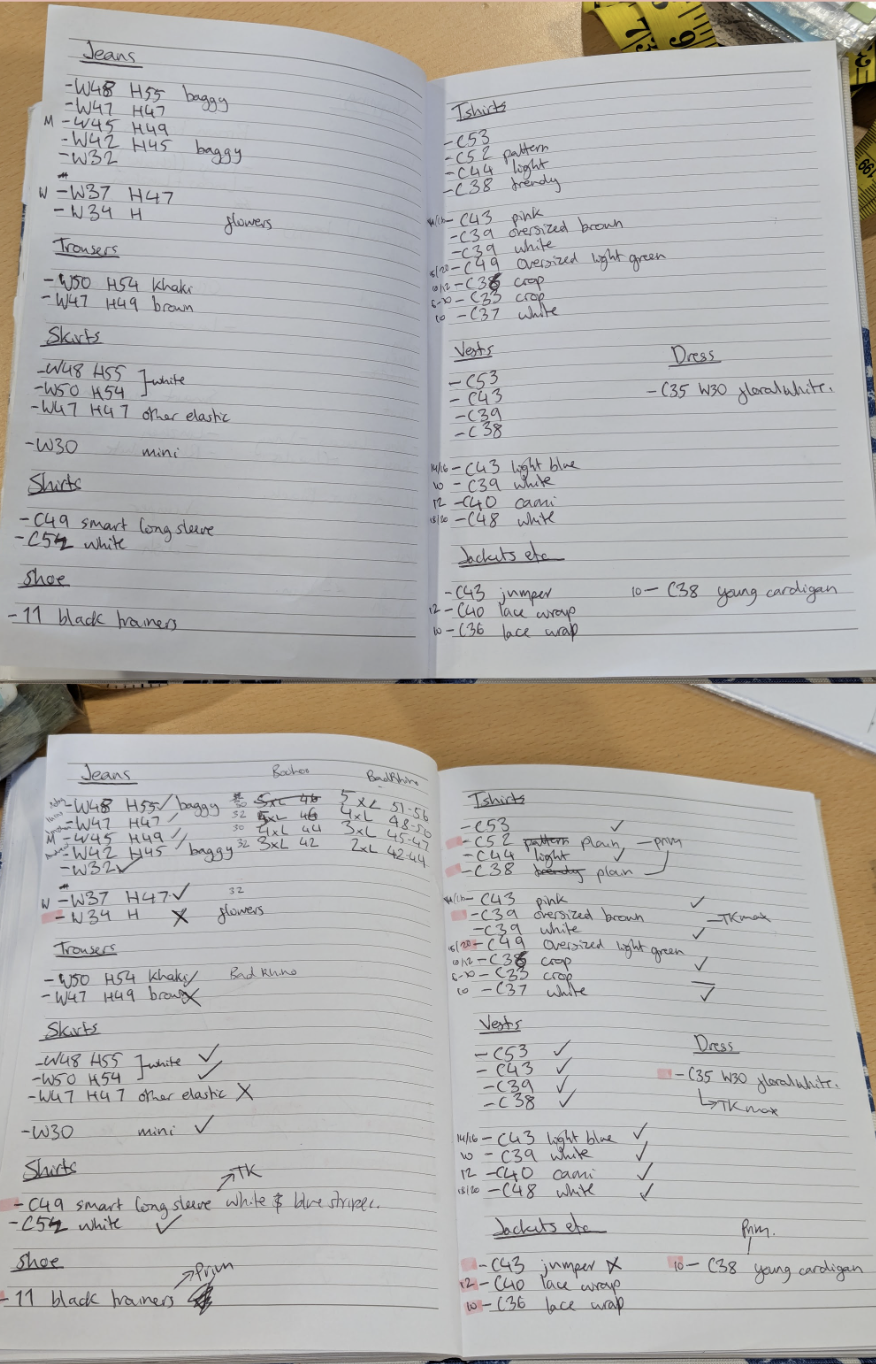 Jeans
-W48 H55 baggy
-W47 H47
M -W45 H49
-W42 H45 baggy
-W32
W -W37 H47
-W34 H flowers
Trousers
-W50 H54 khaki
-W47 H49 brown
Skirts
-W48 H55
-W50 H54 ]-white
-W47 H47 other elastic
-W30 mini
Shirts
-C49 smart long sleeve
-C52 white
Shoe
-11 black trainers
Tshirts
-C53
-C52 pattern
-C44 light
-C38 trendy
14/16- C43 pink
-C39 oversized brown
-C39 white
18/20-C49 oversized light green
10/12-C36 crop
8-10-C33 crop
10 -C37 white
Vests
-C53
-C43
-C39
-C38
14/16-C43 light blue
10 -C39 white
12 -C40 cami
18/20-C48 white
Dress
-C35 W30 floral white.
Jackets etc
-C43 jumper
12-C40 lace wrap
10-C36 lace wrap
10- C38 young cardigan
Jeans Boohoo BadRhino
-W48 H55 ✓ baggy 5xL 46 5xL 51-56
-W47 H47 ✓ 32 5xL 46 4xL 48-50
M -W45 H49 ✓ 30 4xL 44 3xL 45-47
-W42 H45 ✓ baggy 32 3xL 42 2xL 42-44
-W32 ✓
W -W37 H47 ✓ 32
-W34 H X flowers
Trousers
-W50 H54 khaki ✓ Bad Rhino
-W47 H49 brown X
Skirts
-W48 H55 ✓
-W50 H54 ]-white ✓
-W47 H47 other elastic X
-W30 mini ✓
Shirts
TK
-C49 smart long sleeve white & blue stripes.
-C52 white ✓
Shoe
Prim
-11 black trainers
Tshirts
-C53 ✓
-C52 pattern plain -prim
-C44 light ✓
-C38 trendy plain
14/16- C43 pink ✓
-C39 oversized brown -TKmax
-C39 white ✓
18/20-C49 oversized light green
10/12-C36 crop ✓
8-10-C33 crop
10 -C37 white ✓
Vests
-C53 ✓
-C43 ✓
-C39 ✓
-C38 ✓
14/16-C43 light blue ✓
10 -C39 white ✓
12 -C40 cami ✓
18/20-C48 white ✓
Dress
-C35 W30 floral white.
↳TKmax
Jackets etc
-C43 jumper X
12-C40 lace wrap
10-C36 lace wrap
Prim.
10- C38 young cardigan